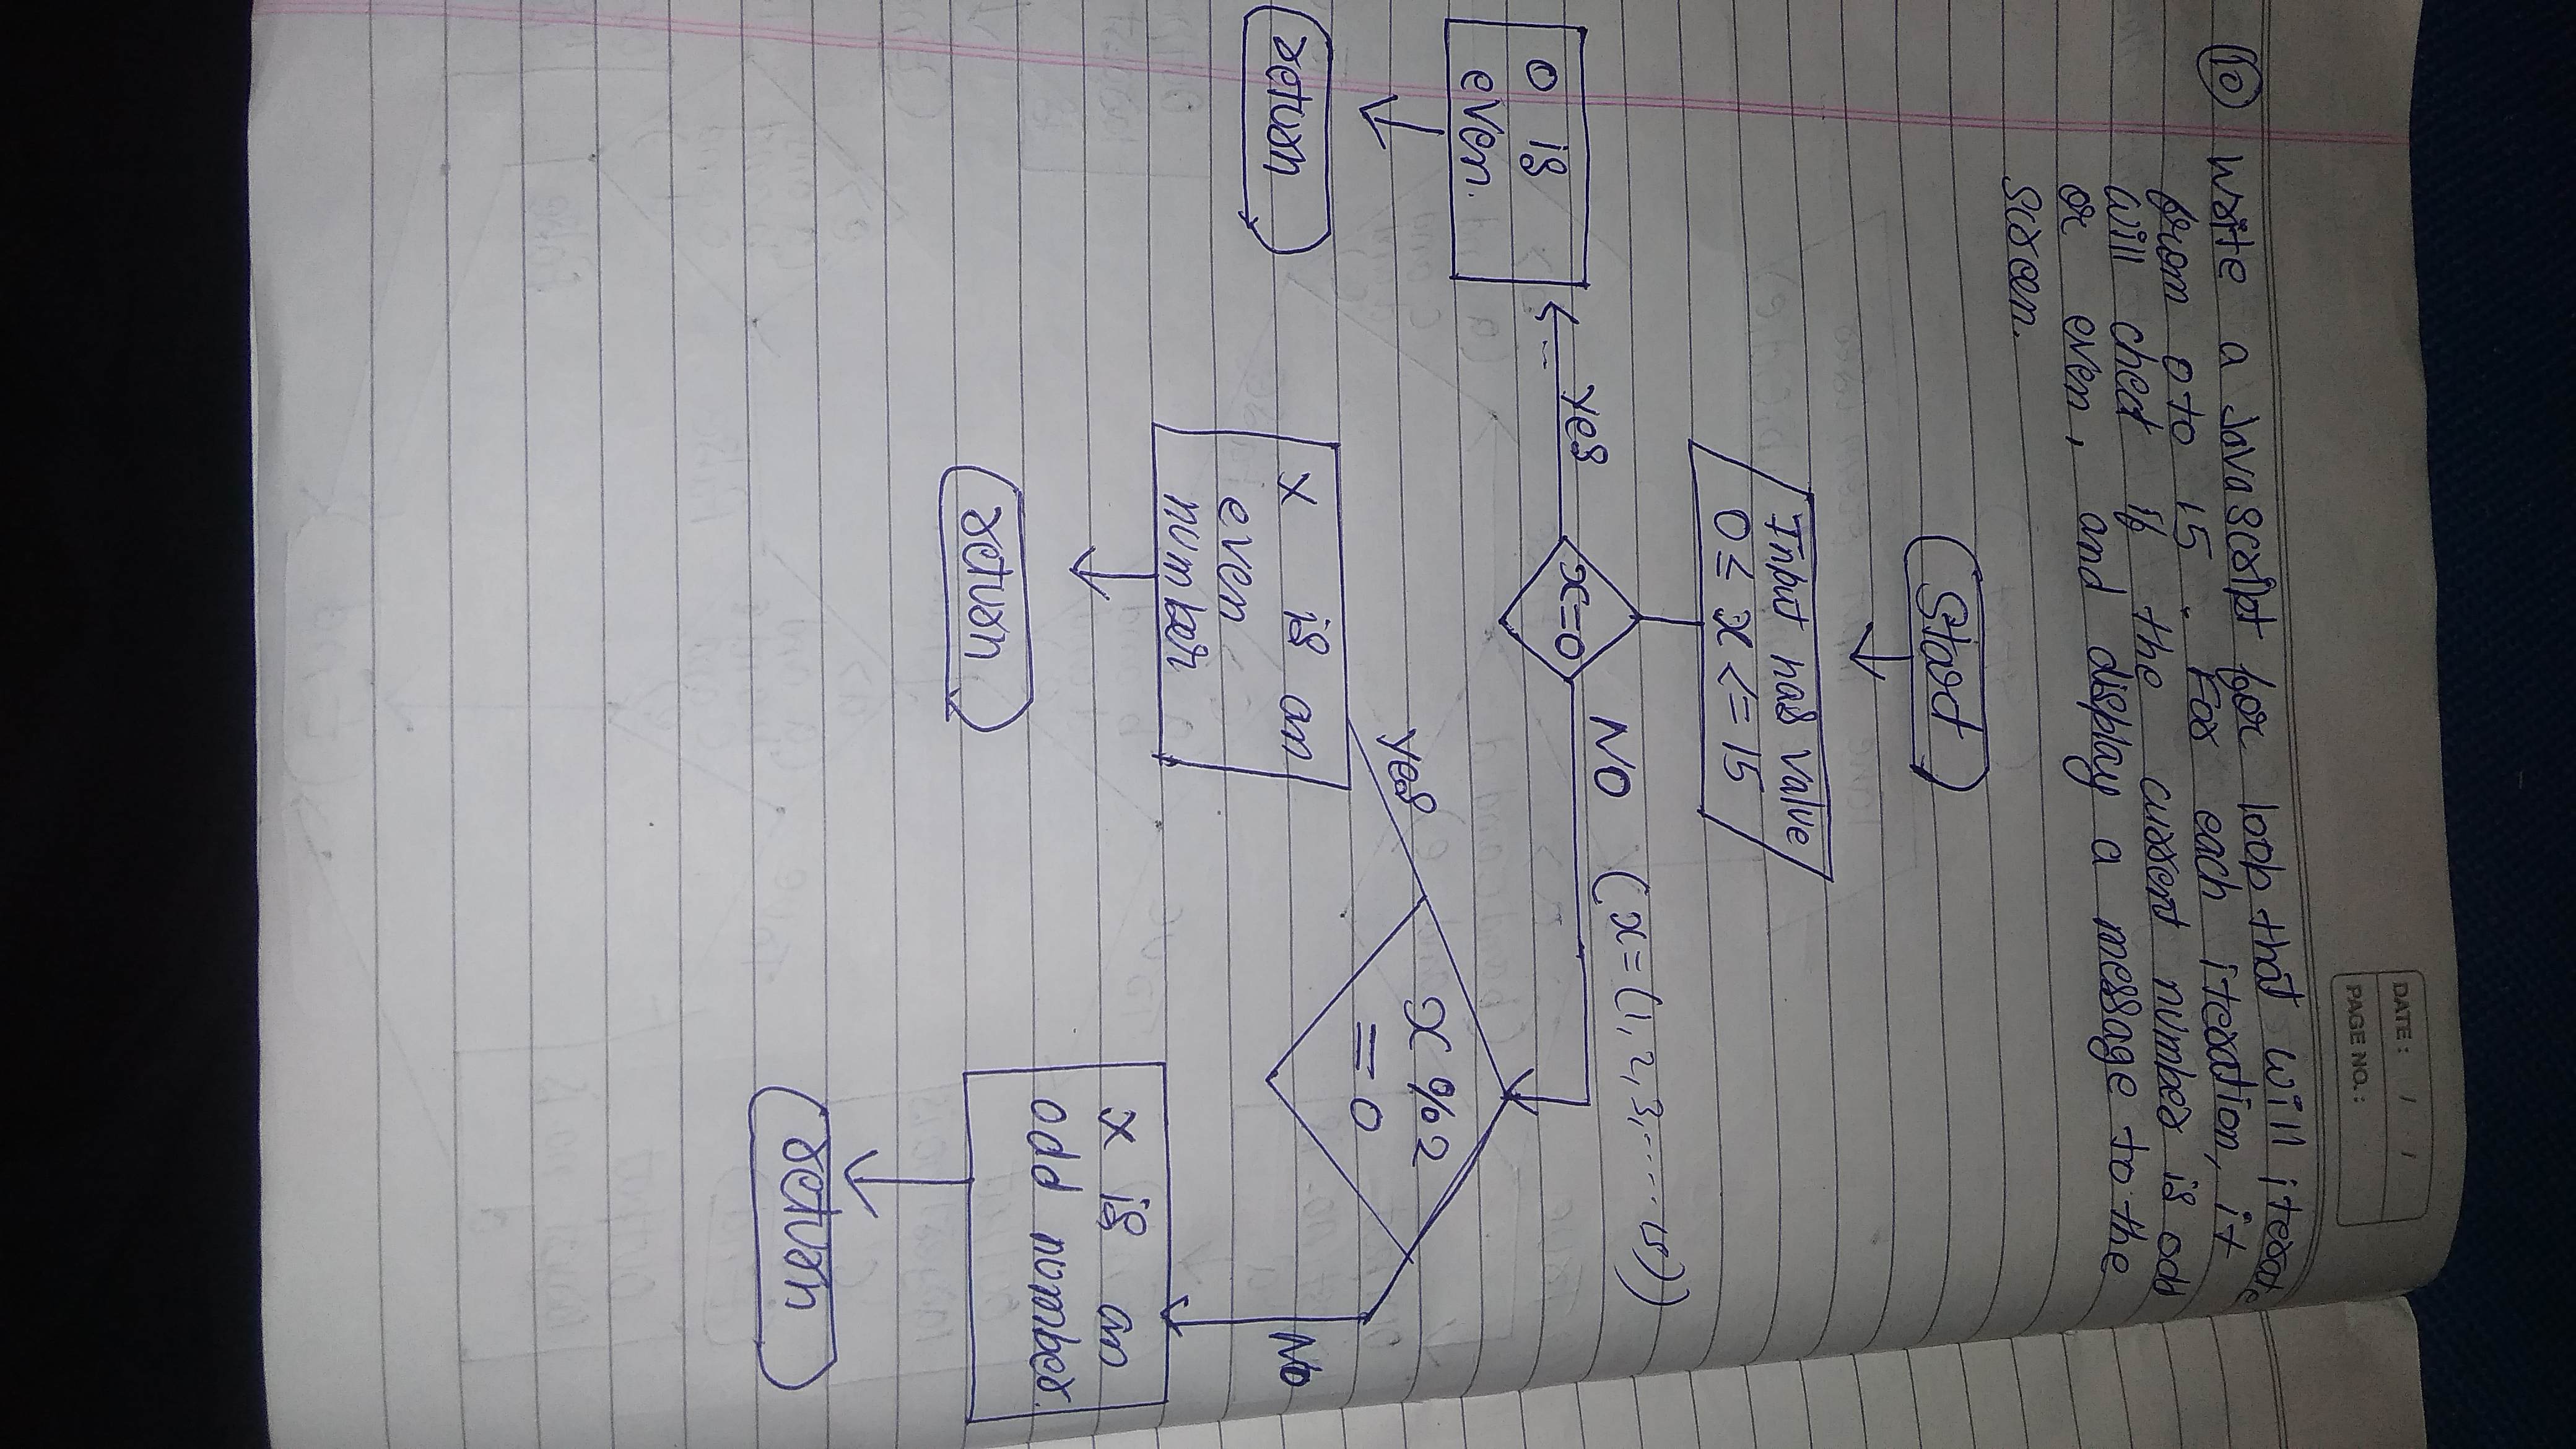 DATE: / /
PAGE NO.:
10 Write a Javascript for loop that will iterate
from 0 to 15. For each iteration, it
will check if the current number is odd
or even, and display a message to the
screen.
Start
Input has value
0 ≤ x <= 15
x=0
Yes
NO (x=(1,2,3,......15))
0 is
even.
return
x%2
=0
Yes
No
x is an
even
number
return
x is an
odd number.
return